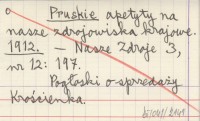 Pruskie apetyty na
nasze zdrojowiska krajowe.
1912. — Nasze Zdroje 3,
nr 12: 197.
Pogłoski o sprzedaży
Krościenka.